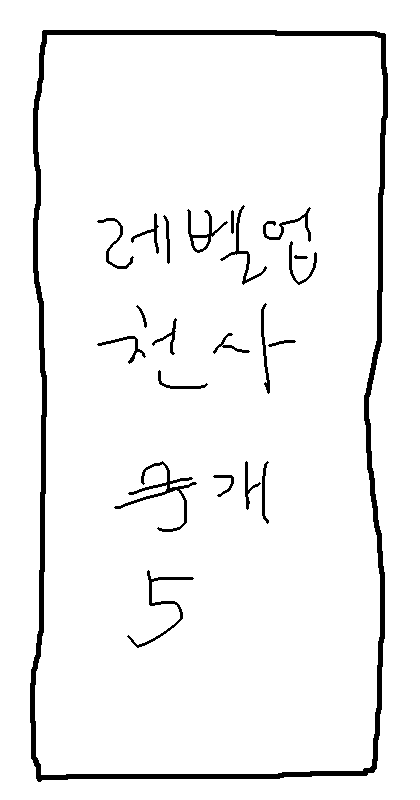 레벨업
천사
개
5